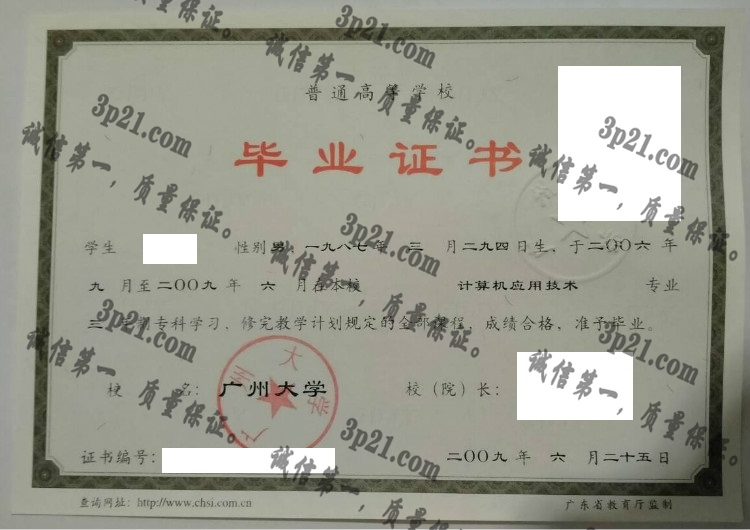 普通高等学校
毕业证书
学生 性别男，一九八七年 三 月二九四日生、于二〇〇六年
九 月至二〇〇九年 六 月在本校 计算机应用技术 专业
三 年制专科学习、修完教学计划规定的全部课程，成绩合格，准予毕业。
校 名：广州大学 校（院）长：
广州大学
证书编号： 二〇〇九年 六 月二十五日
查询网址：http://www.chsi.com.cn 广东省教育厅监制
3p21.com
诚信第一，质量保证。
3p21.com
诚信第一，质量保证。
3p21.com
诚信第一，质量保证。
3p21.com
诚信第一，质量保证。
3p21.com
诚信第一，质量保证。
3p21.com
诚信第一，质量保证。
3p21.com
诚信第一，质量保证。